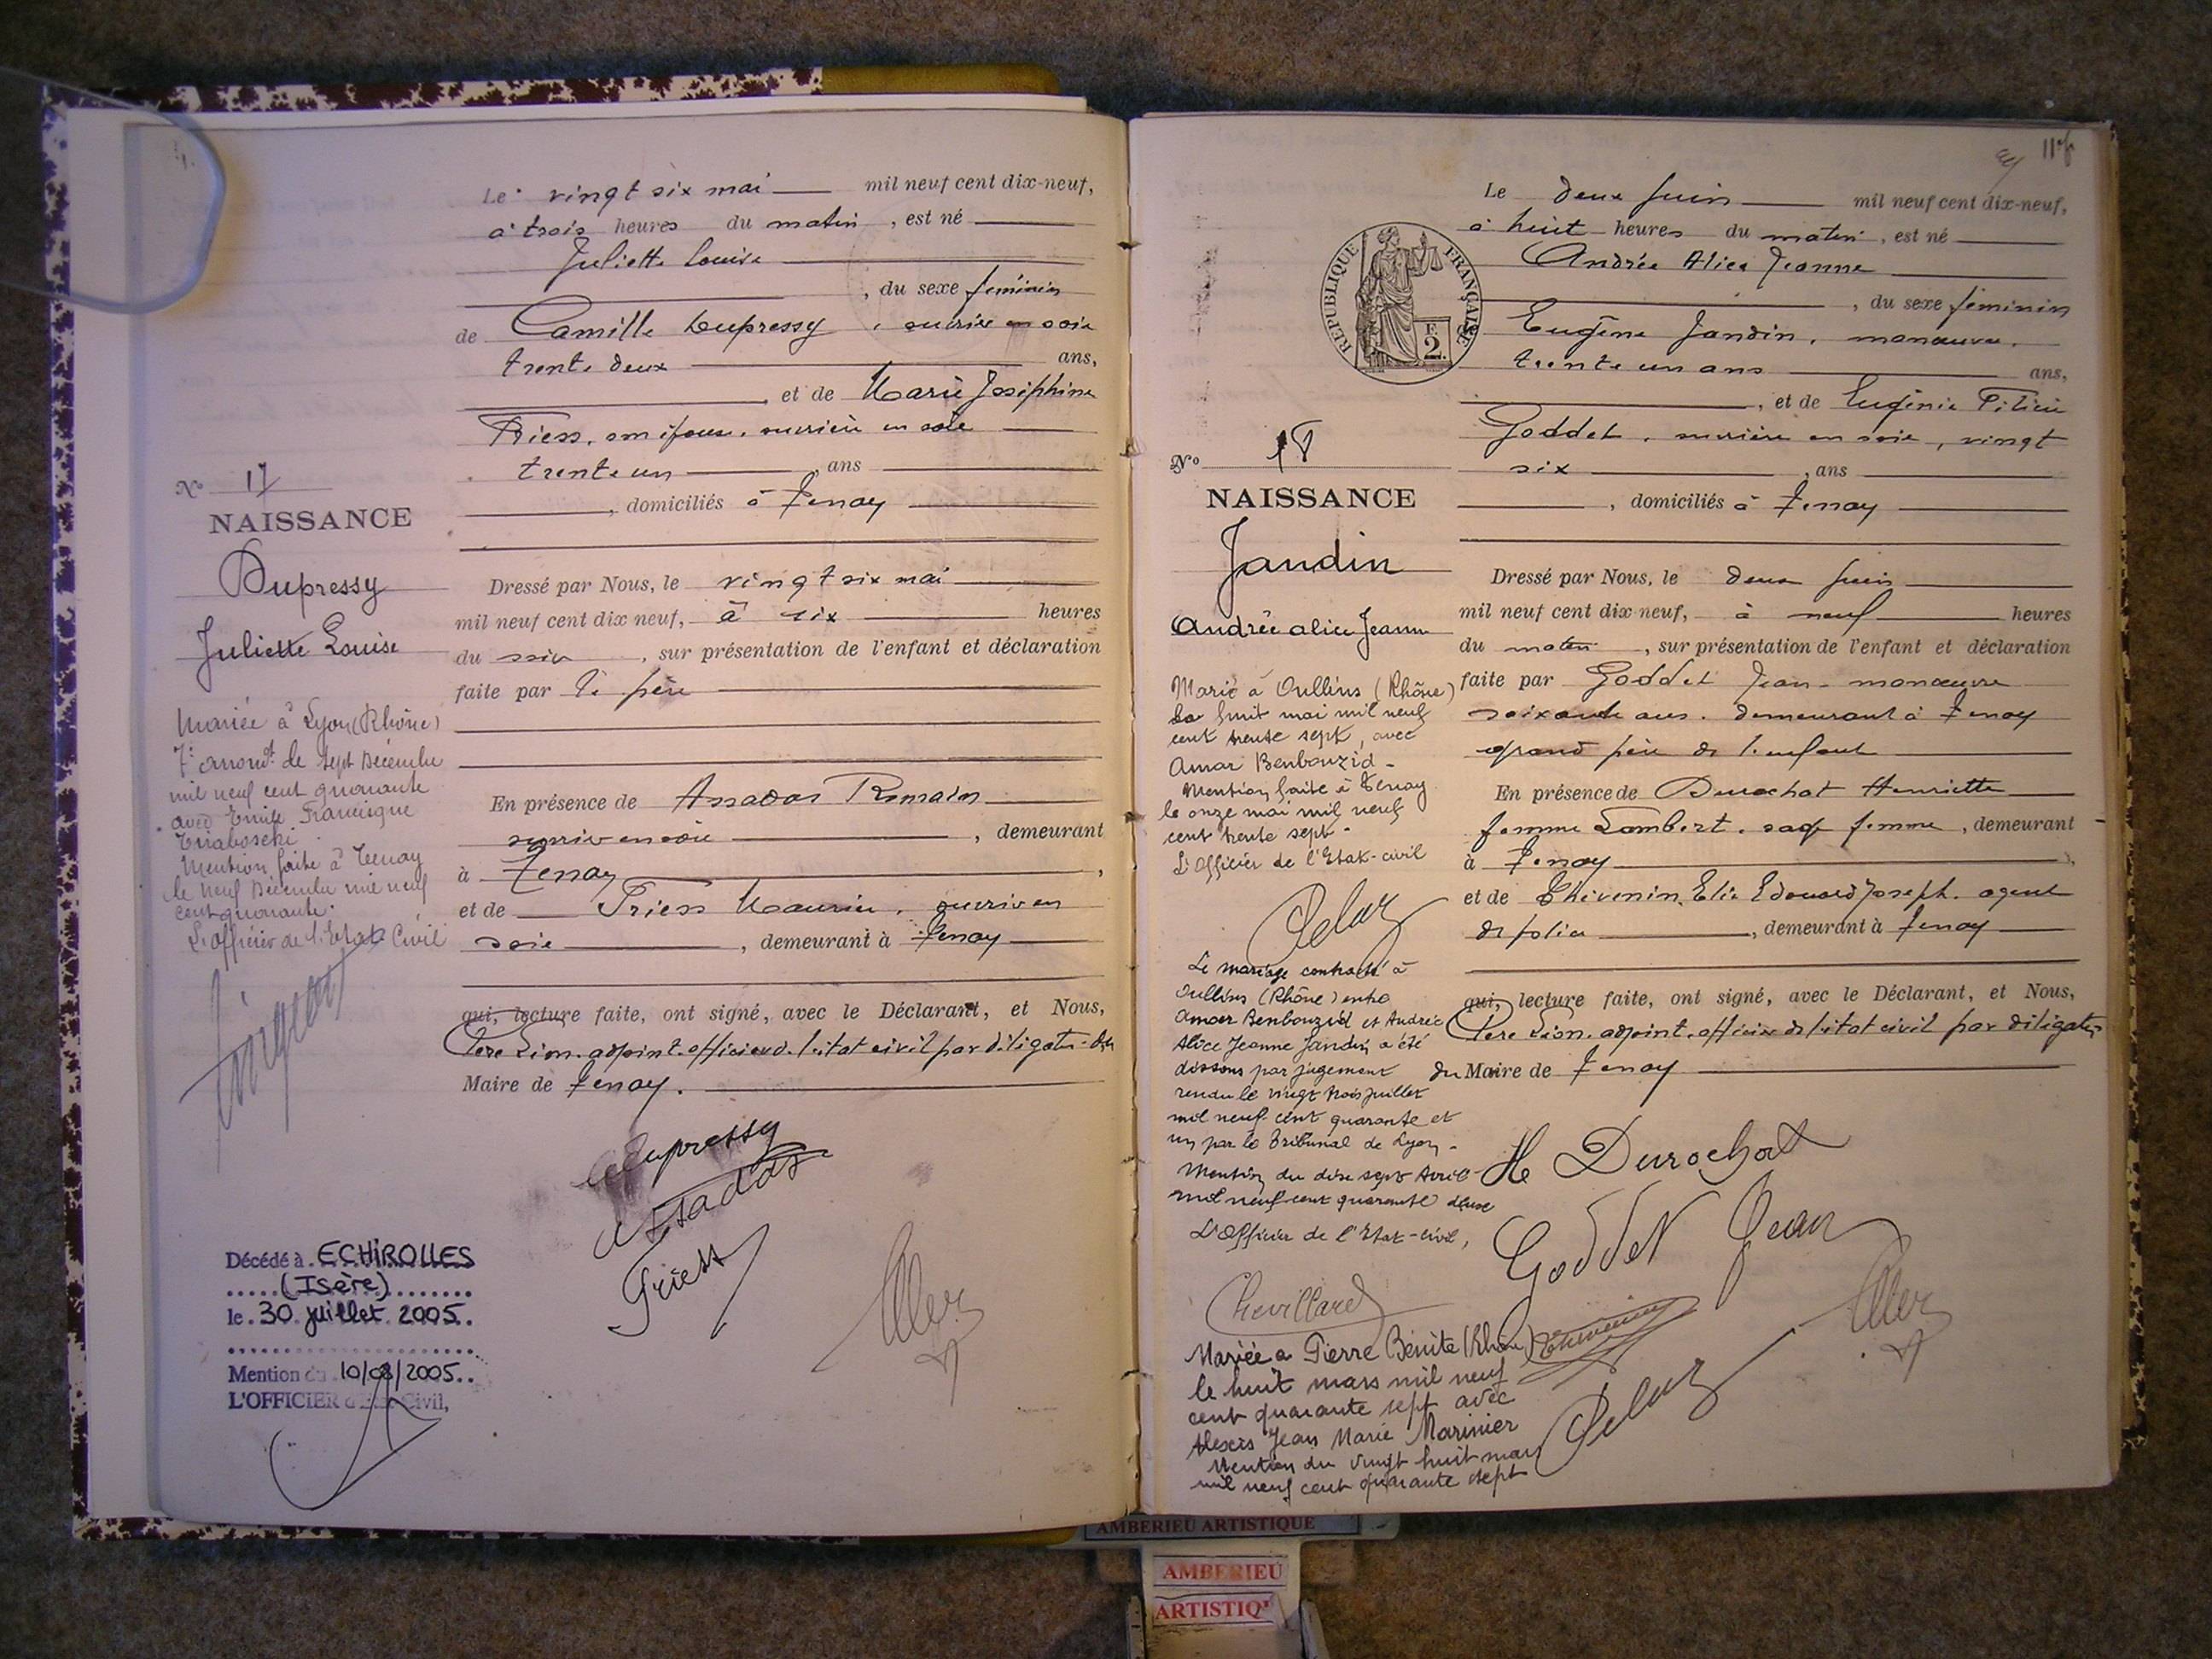 Le vingt six mai mil neuf cent dix-neuf,
à trois heures du matin, est né
Juliette Louise
, du sexe féminin
de Camille Dupressy, ouvrier en soie
trente deux ans,
, et de Marie Joséphine
Friess, son épouse, ouvrière en soie
trente un, ans
, domiciliés à Tenay
No 17
NAISSANCE
Dupressy
Juliette Louise
Dressé par Nous, le vingt six mai
mil neuf cent dix neuf, à six heures
du soir, sur présentation de l'enfant et déclaration
faite par le père
En présence de Assadas Romain
ouvrier en soie, demeurant
à Tenay,
et de Friess Maurice, ouvrier en
soie, demeurant à Tenay
qui, lecture faite, ont signé, avec le Déclarant, et Nous,
adjoint officier de l'état civil par délégation du
Maire de Tenay.
Mariée à Lyon (Rhône)
7e arrondt le sept Décembre
mil neuf cent quarante
avec Emile Francisque
Tiraboschi
Mention faite à Tenay
le neuf Décembre mil neuf
cent quarante.
L'officier de l'Etat Civil
Dupressy
Assadas
Friess
Décédé à ECHIROLLES
(Isère)
le 30 juillet 2005
Mention du 10/08/2005
L'OFFICIER d'Etat Civil,
Le deux juin mil neuf cent dix-neuf,
à huit heures du matin, est né
Andrée Alice Jeanne
, du sexe féminin
de Eugène Jandin, manœuvre,
trente un ans ans,
, et de Eugénie
Goddet, ouvrière en soie, vingt
six, ans
, domiciliés à Tenay
REPUBLIQUE FRANÇAISE
F.
2
No 18
NAISSANCE
Jandin
Andrée Alice Jeanne
Dressé par Nous, le deux juin
mil neuf cent dix-neuf, à neuf heures
du matin, sur présentation de l'enfant et déclaration
faite par Goddet Jean manœuvre
soixante ans. demeurant à Tenay
grand père de l'enfant
En présence de Durochat Henriette
femme Lambert, sage femme, demeurant
à Tenay,
et de Thévenin Elie Edouard Joseph, agent
de police, demeurant à Tenay
qui, lecture faite, ont signé, avec le Déclarant, et Nous,
adjoint officier de l'état civil par délégation
du Maire de Tenay
Marié à Oullins (Rhône)
le huit mai mil neuf
cent trente sept, avec
Amar Benbouzid -
Mention faite à Tenay
le onze mai mil neuf
cent trente sept -
L'Officier de l'Etat-civil
Le mariage contracté à
Oullins (Rhône) entre
Amar Benbouzid et Andrée
Alice Jeanne Jandin a été
dissous par jugement
rendu le vingt trois juillet
mil neuf cent quarante et
un par le Tribunal de Lyon -
Mention du dix sept Avril
mil neuf cent quarante deux
L'Officier de l'Etat-civil,
Chevillard
H Durochat
Goddet Jean
Mariée à Pierre Bénite (Rhône)
le huit mars mil neuf
cent quarante sept avec
Alexis Jean Marie Marinier
Mention du vingt huit mars
mil neuf cent quarante sept
AMBERIEU ARTISTIQUE
AMBERIEU
ARTISTIQ